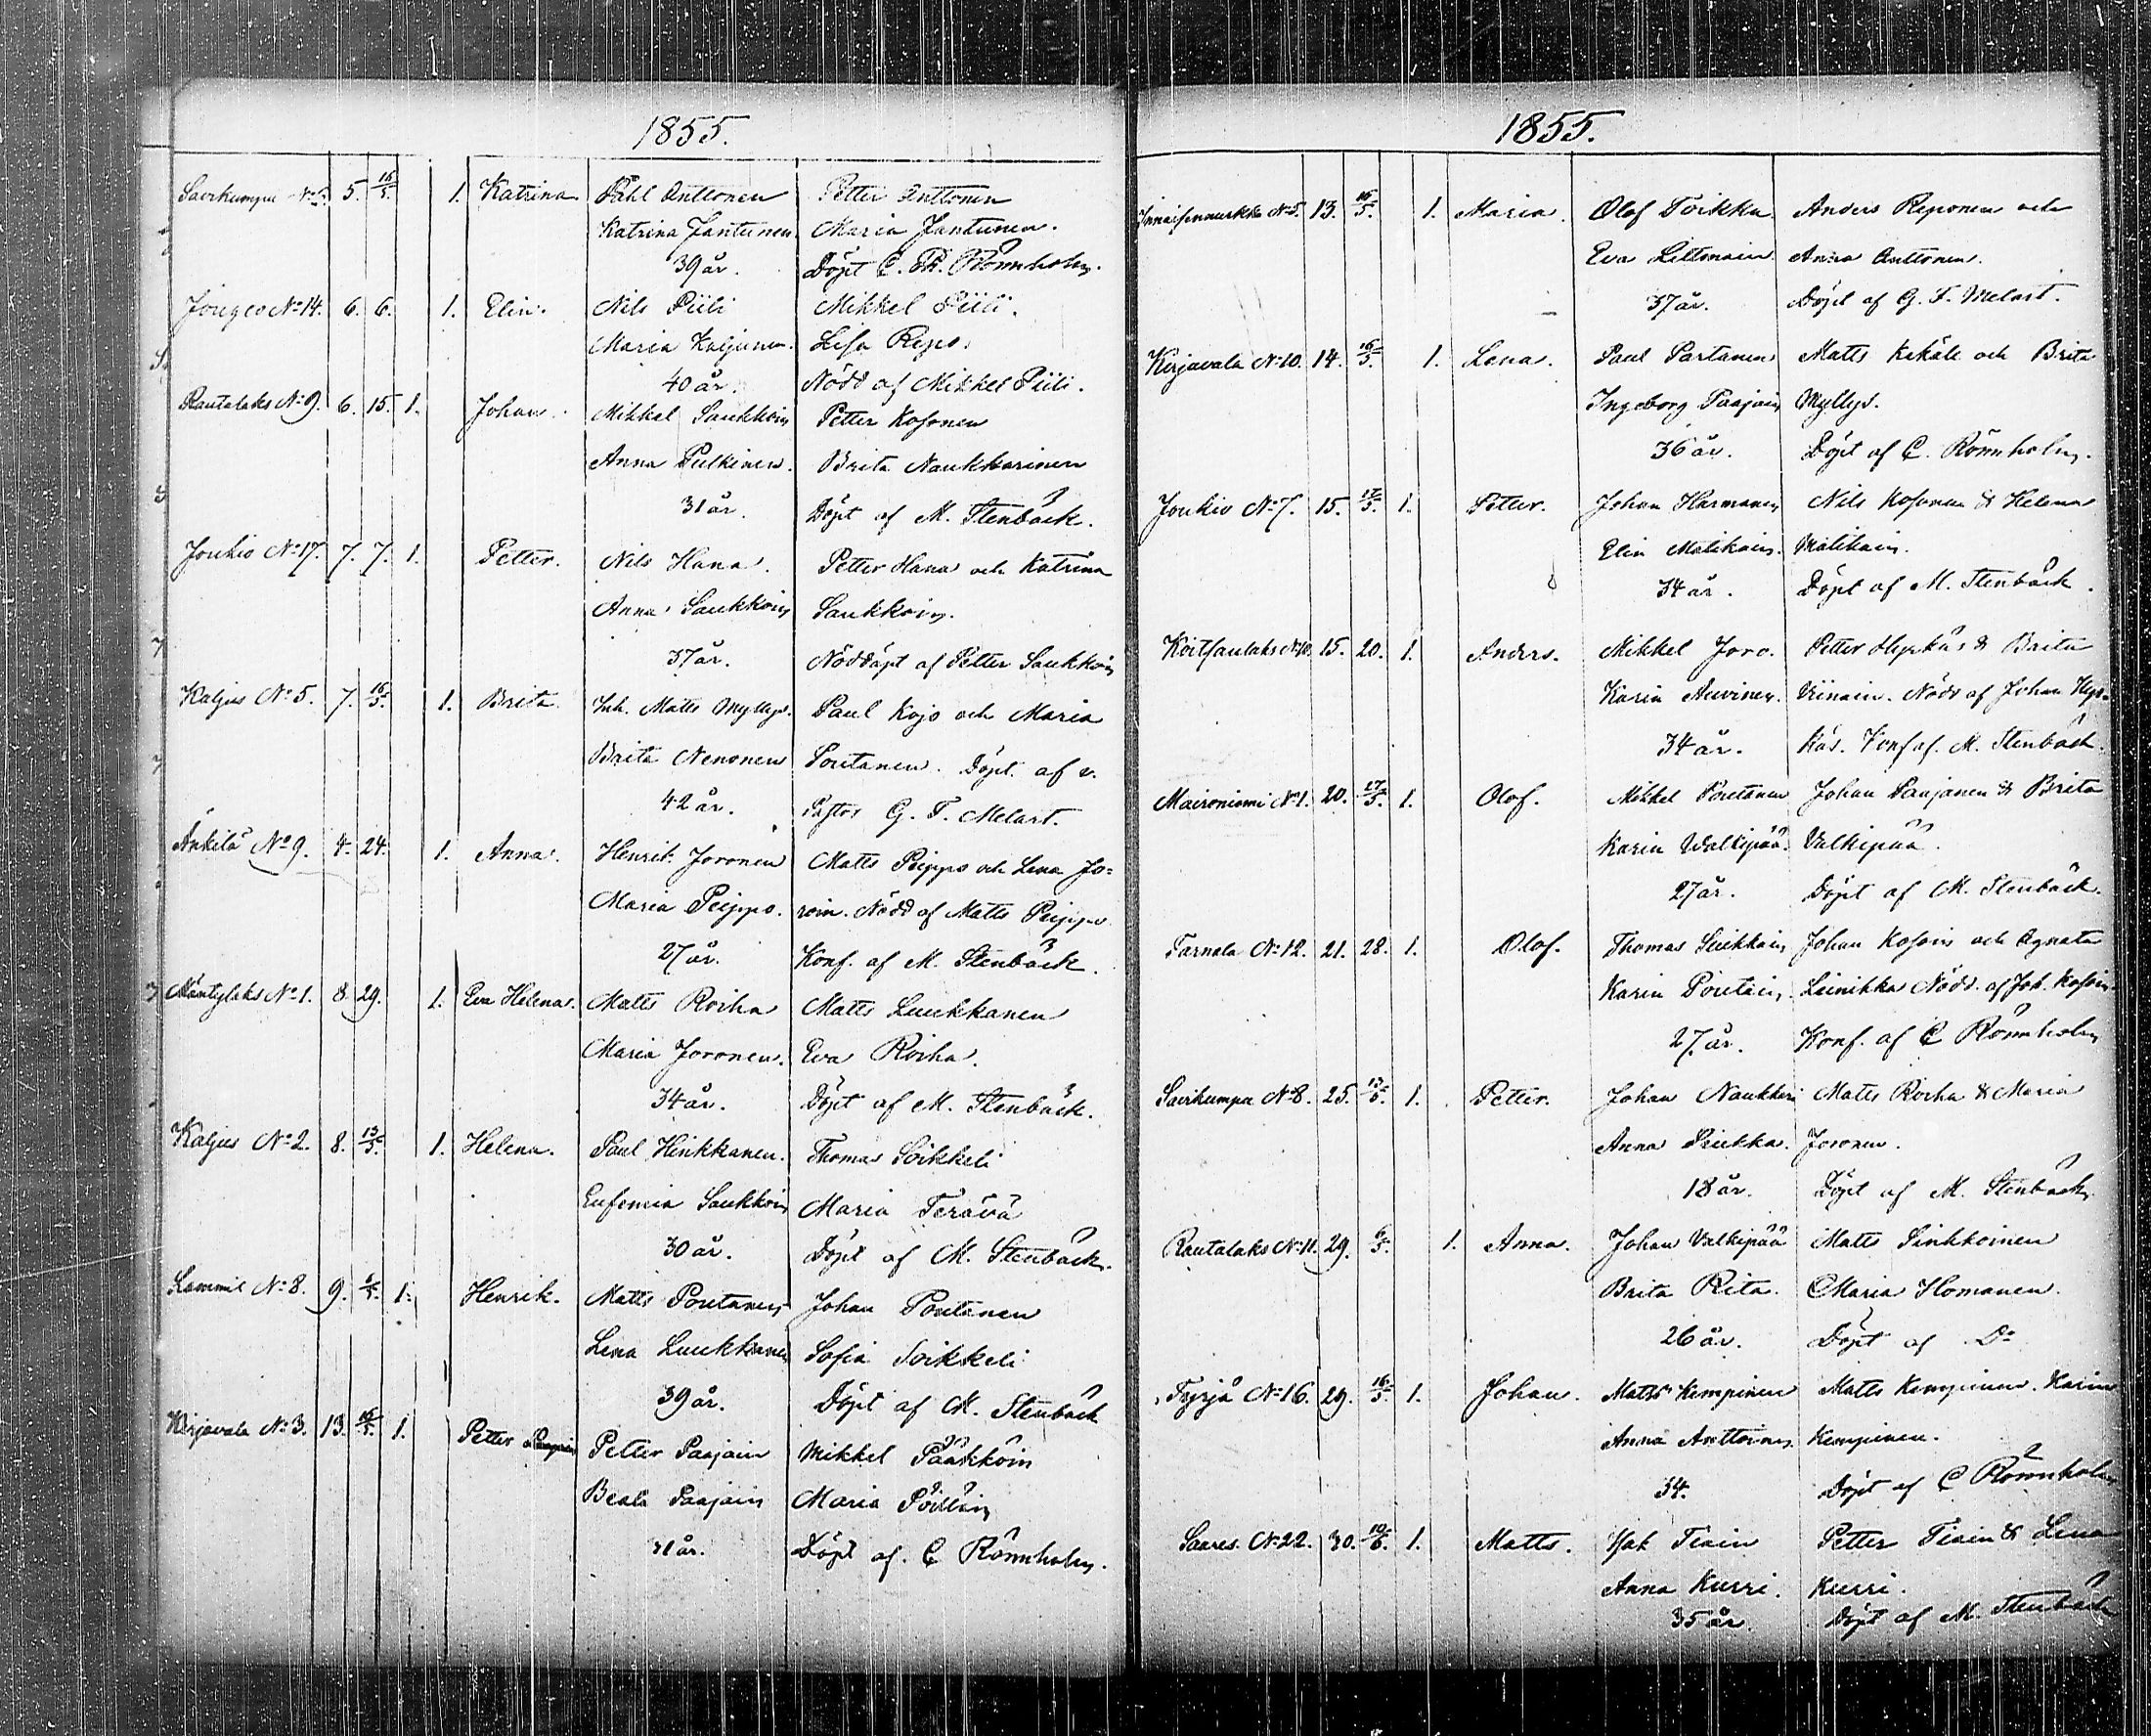 1855.
Savikumpu No 5. 5. 15/5. 1. Katrina Påhl Anttonen Petter Anttonen
Katrina Jantunen. Maria Jantunen.
39 år. Döpt C. Th. Rönnholm.
No 14. 6. 6. 1. Elin. Nils Piili Mikkel Piili.
Maria Kaljunen. Lisa Repo.
40 år. Nödd af Mikkel Piili.
Rautalaks No 9. 6. 15. 1. Johan. Mikkel Saukkoin Petter Kosonen
Anna Pulkinen. Brita Naukkarinen
31 år. Döpt af M. Stenbäck.
Joukio No 17. 7. 7. 1. Petter. Nils Hana. Petter Hana och Katrina
Anna Saukkoin Saukkoin.
37 år. Nöddöpt af Petter Saukkoin
Kaljus No 5. 7. 16/5. 1. Brita Inh. Matts Myllys. Paul Kojo och Maria
Brita Nenonen Poutanen. Döpt. af v.
42 år. Pastor G. F. Melart.
Änkilä No 9. 4. 24. 1. Anna. Henrik Joronen Matts Peippo och Lena Jo=
Maria Peippo. roin. Nödd af Matts Peippo
27 år. Konf. af M. Stenbäck.
Mäntylaks No 1. 8. 29. 1. Eva Helena. Matts Roiha Matts Luukkanen
Maria Joronen. Eva Roiha.
34 år. Döpt af M. Stenbäck.
Kaljus No 2. 8. 13/5. 1. Helena. Paul Hinkkanen. Thomas Soikkeli
Eufemia Saukkoin Maria Terävä
30 år. Döpt af M. Stenbäck.
Lammil No 8. 9. 1. Henrik. Matts Poutanen Johan Poutanen
Lena Luukkanen Sofia Soikkeli
39 år. Döpt af M. Stenbäck
Kirjavala No 3. 13. 16/5. 1. Petter Petter Paajain Mikkel Pääkköin
Beata Paajain Maria
31 år. Döpt af C Rönnholm.
1855.
No 5. 13. 16/5. 1. Maria. Olof Toikka Anders Reponen och
Eva Littonain Anna Anttonen.
37 år. Döpt af G. F. Melart.
Kirjavala No 10. 14. 16/5. 1. Lena. Paul Partanen Matts Kekäle och Brita
Ingeborg Paajain Myllys.
36 år. Döpt af C. Rönnholm.
Joukio No 7. 15. 17/5. 1. Petter. Johan Harmanen Nils Kosonen & Helena
Elin Matikain. Matikain.
34 år. Döpt af M. Stenbäck.
Koitsanlaks No 10. 15. 20. 1. Anders. Mikkel Joro. Petter Hyrkäs & Brita
Karin Auvinen. Viinain. Nödd af Johan Hyr=
34 år. käs. Konf af. M. Stenbäck.
Maironiemi No 1. 20. 27/5. 1. Olof. Mikkel Poutanen Johan Paajanen & Brita
Karin Walkipää. Valkipää.
27 år. Döpt af M. Stenbäck.
Tarnala No 12. 21. 28. 1. Olof. Thomas Johan Kosoin och Agnata
Karin Poutain. Leinikka Nödd. af Joh. Kosoin.
27. år. Konf. af C Rönnholm
Savikumpu No 8. 25. 1. Petter. Johan Naukkari Matts Roiha & Maria
Anna Joronen.
18 år. Döpt af M. Stenbäck.
Rautalaks No 11. 29. 1. Anna. Johan Valkipää Matts Sinkkoinen
Brita Rita. Maria Homanen.
26 år. Döpt af Do
Tyrjä No 16. 29. 16/5. 1. Johan. Matts Kempinen Matts Kempinen. Karin
Anna Anttoinen. Kempinen.
34. Döpt af C Rönnholm
Saares. No 22. 30. 10/6. 1. Matts. Isak Tiain Petter Tiain & Lena
Anna Kurri. Kurri.
35 år. Döpt af M. Stenbäck